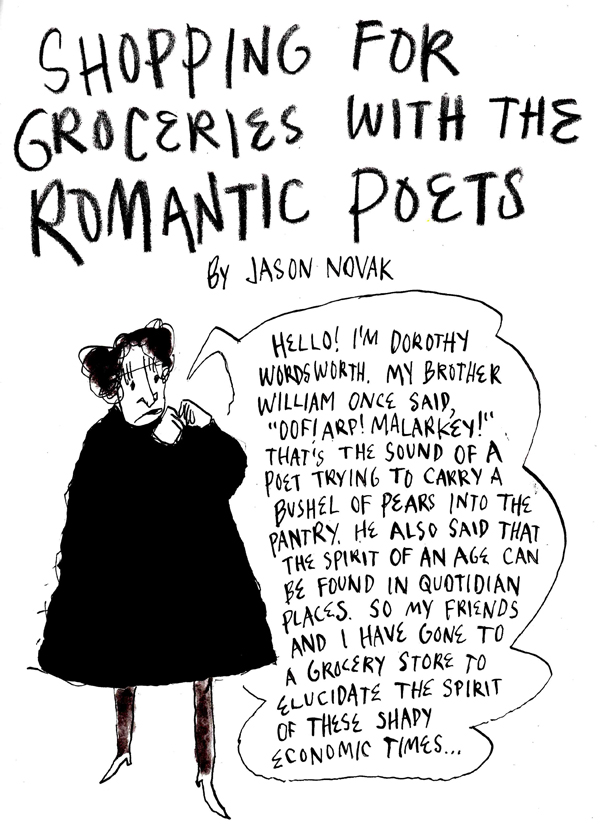 SHOPPING FOR
GROCERIES WITH THE
ROMANTIC POETS
BY JASON NOVAK
HELLO! I'M DOROTHY
WORDSWORTH. MY BROTHER
WILLIAM ONCE SAID,
"OOF! ARP! MALARKEY!"
THAT'S THE SOUND OF A
POET TRYING TO CARRY A
BUSHEL OF PEARS INTO THE
PANTRY. HE ALSO SAID THAT
THE SPIRIT OF AN AGE CAN
BE FOUND IN QUOTIDIAN
PLACES. SO MY FRIENDS
AND I HAVE GONE TO
A GROCERY STORE TO
ELUCIDATE THE SPIRIT
OF THESE SHADY
ECONOMIC TIMES...